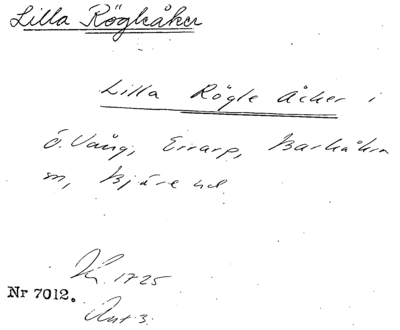 Lilla Rögleåker
Lilla Rögle Åcker i
Ö. Vång, Eirarp, Barkåkra
sn, Bjäre hd.
Nr 7012.
1725
3.